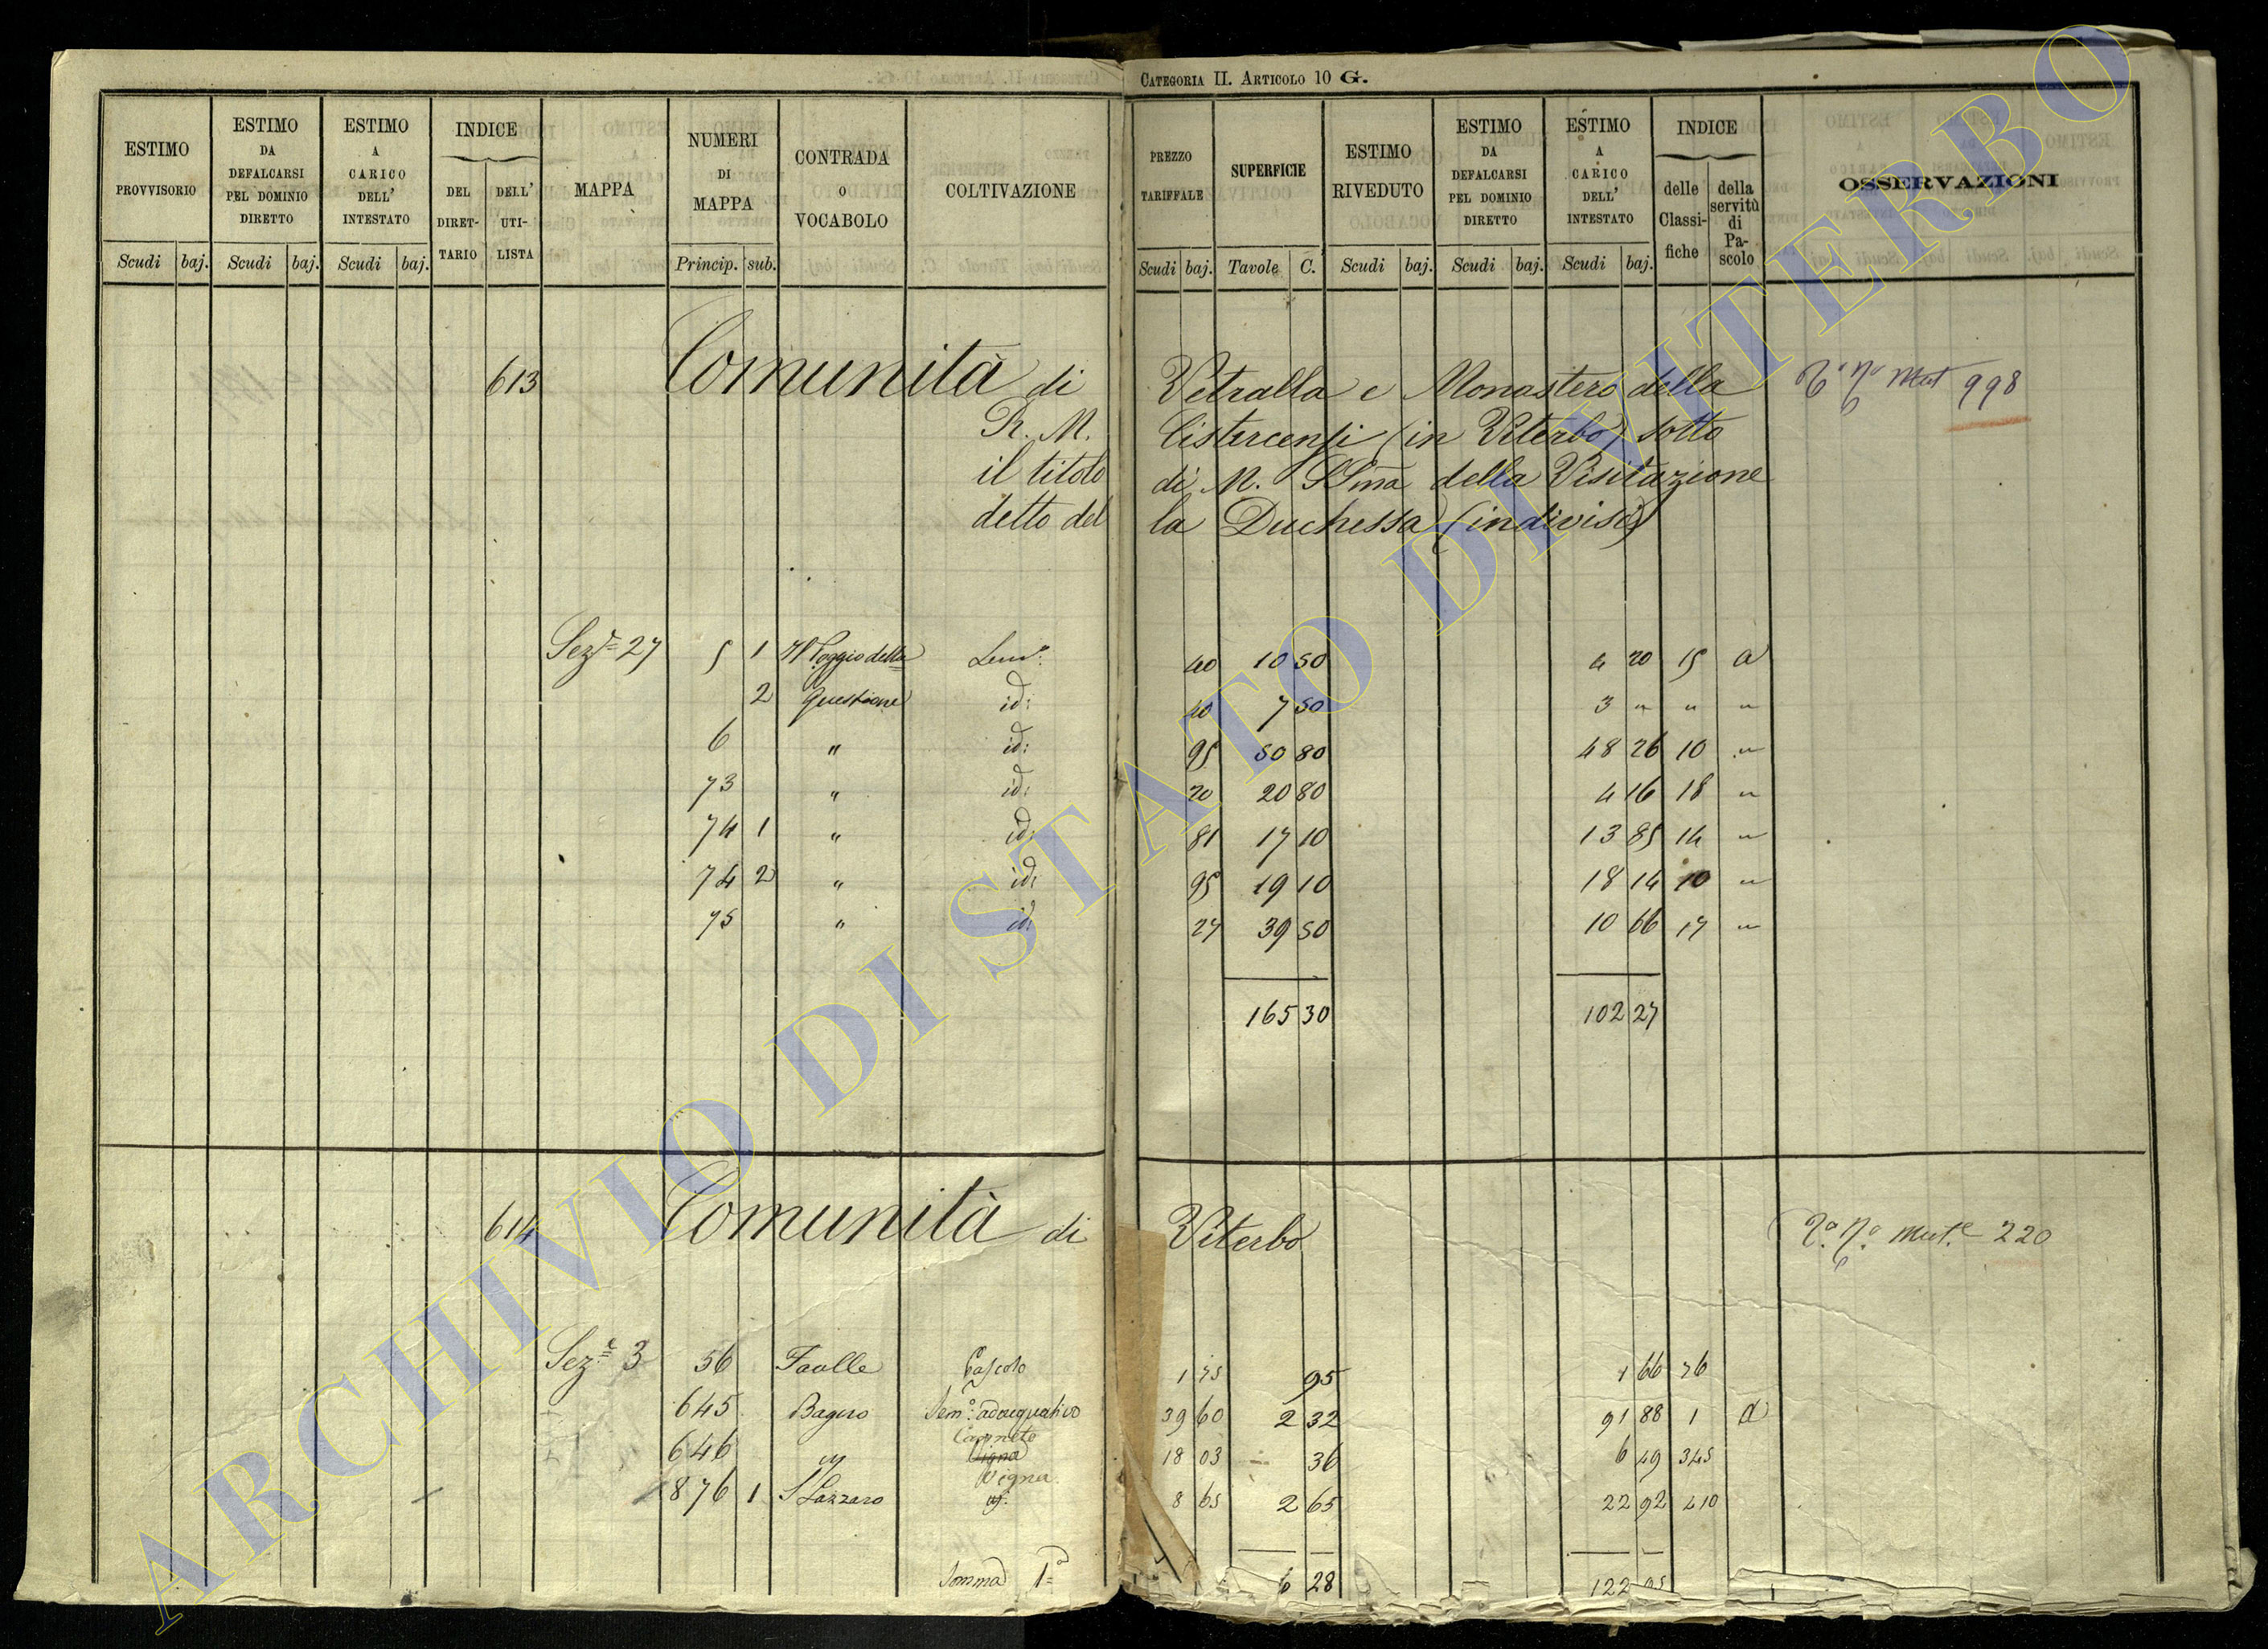 CATEGORIA II. ARTICOLO 10 G.
ESTIMO PROVVISORIO
ESTIMO DA DEFALCARSI PEL DOMINIO DIRETTO
ESTIMO A CARICO DELL' INTESTATO
INDICE
DEL DIRET-TARIO
DELL' UTI-LISTA
MAPPA
NUMERI DI MAPPA
CONTRADA O VOCABOLO
COLTIVAZIONE
PREZZO TARIFFALE
SUPERFICIE
ESTIMO RIVEDUTO
ESTIMO DA DEFALCARSI PEL DOMINIO DIRETTO
ESTIMO A CARICO DELL' INTESTATO
INDICE
delle Classi-fiche
della servitù di Pa-scolo
OSSERVAZIONI
Scudi baj. Scudi baj. Scudi baj. Princip. sub. Scudi baj. Tavole C. Scudi baj. Scudi baj. Scudi baj.
613 Comunità di Vetralla e Monastero della 998
R. M. Cistercensi (in Viterbo) sotto
il titolo di M. SSma della Visitazione
detto del la Duchessa (indivisi)
Sez.e 27 5 1 Il Poggio della Sem.o 40 10 50 4 20 15 a
2 Questione id: 40 7 50 3 " " "
6 " id: 95 50 80 48 26 10 "
73 " id: 20 20 80 4 16 18 "
74 1 " id: 81 17 10 13 85 14 "
74 2 " id: 95 19 10 18 14 10 "
75 " id: 27 39 50 10 66 17 "
165 30 102 27
614 Comunità di Viterbo Mut.e 220
Sez.e 3 56 Faulle Pascolo 1 75 95 1 66 76
645 Bagno Sem.o adacquativo 39 60 2 32 91 88 1 a
Canneto
646 " Vigna 18 03 36 6 49 345
Vigna
876 1 S Lazzaro 8 65 2 65 22 92 410
Somma 1a 6 28 122 95
ARCHIVIO DI STATO DI VITERBO